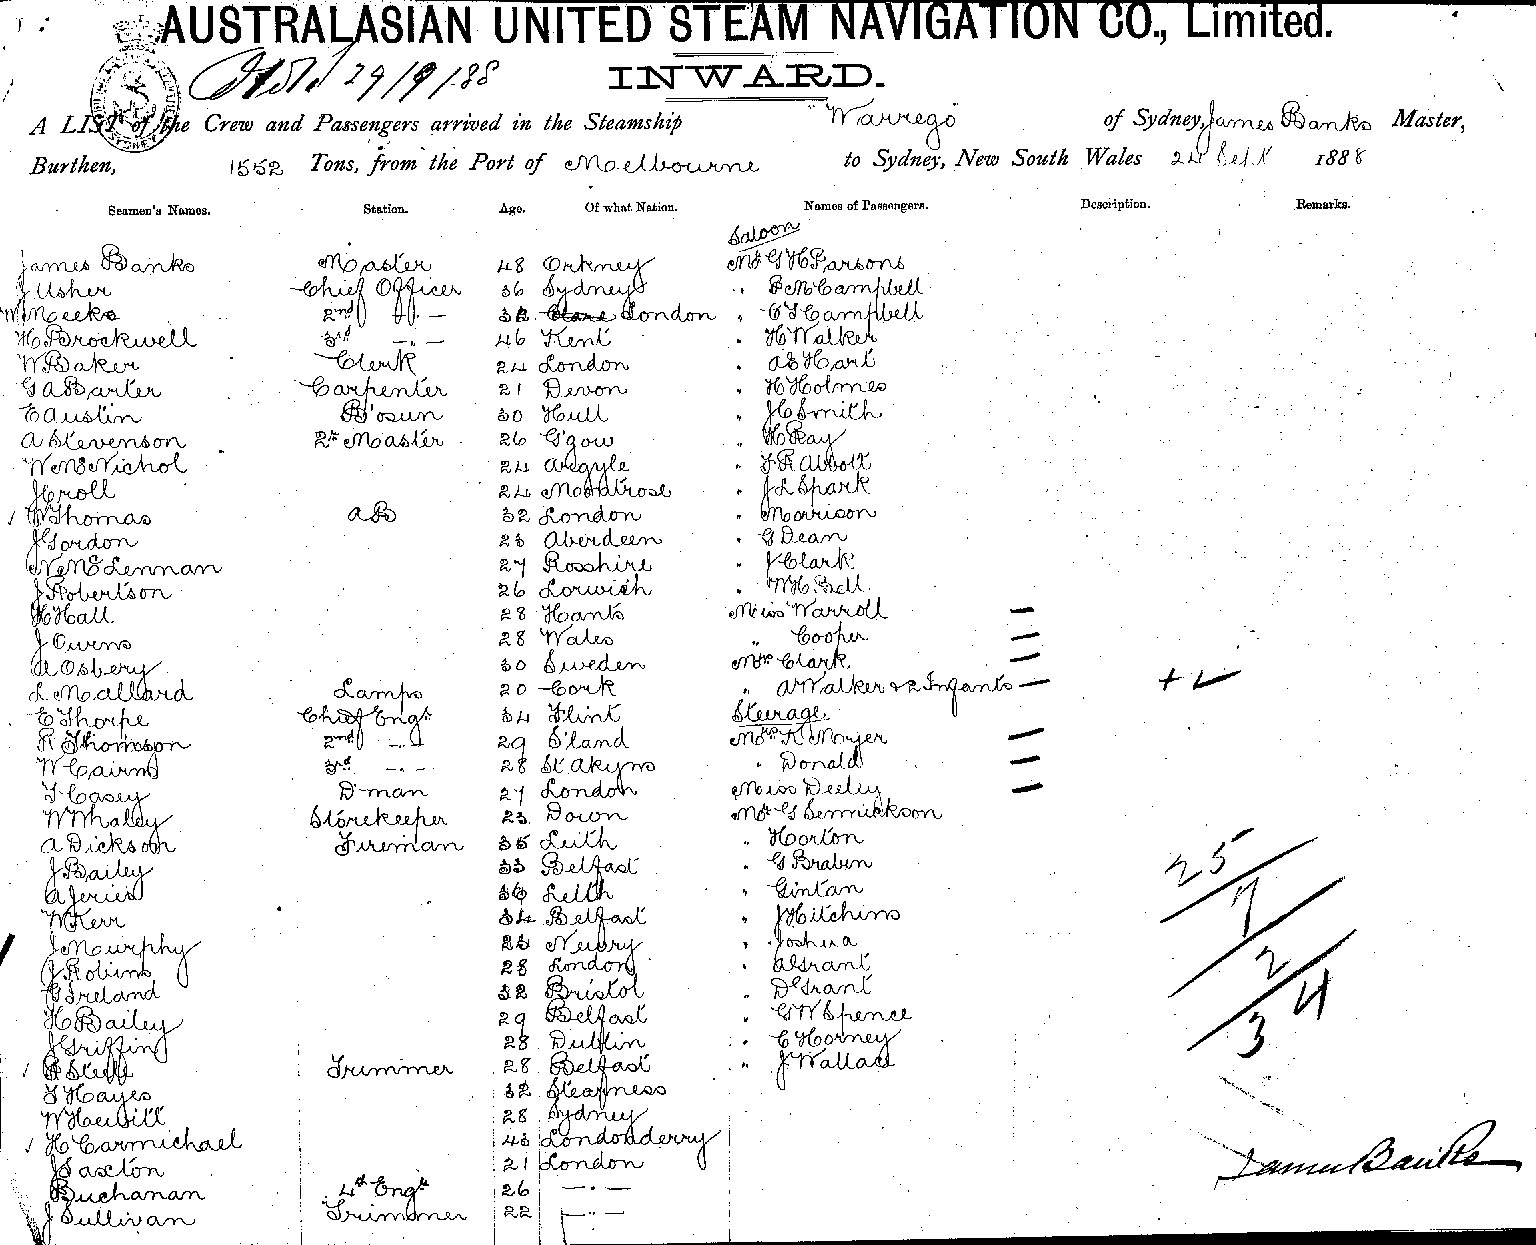 AUSTRALASIAN UNITED STEAM NAVIGATION CO., Limited.
29/9/88 INWARD.
A LIST of the Crew and Passengers arrived in the Steamship "Warrego" of Sydney, James Banks Master,
Burthen, 1552 Tons, from the Port of Melbourne to Sydney, New South Wales 24 Sept 1888
Seamen's Names. Station. Age. Of what Nation. Names of Passengers. Description. Remarks.
Saloon
James Banks Master 48 Orkney Mr G H Parsons
J Usher Chief Officer 36 Sydney " P McCampbell
W Meeks 2nd " - 32 London " C T Campbell
H Brockwell 3rd -"- 46 Kent " H Walker
W Baker Clerk 24 London " A E Hart
G A Barter Carpenter 21 Devon " H Holmes
E Austin B'osun 30 Hull " J C Smith
A Stevenson 2nd Master 26 G'gow " H Ray
W McNichol 24 Argyle " F R Abbott
J Croll 24 Montrose " J L Spark
W Thomas AB 32 London " Morrison
J Gordon 23 Aberdeen " G Dean
N McLennan 27 Rosshire " J Clark
J Robertson 26 Lerwich " W H Bell
H Hall 28 Hants Miss Warroll —
J Owens 28 Wales " Cooper —
A Osbery 30 Sweden Mrs Clark —
L Mallard Lamps 20 Cork " A Walker & 2 Infants — + ✓
E Thorpe Chief Engr 34 Flint Steerage
R Thomson 2nd -"- 29 S'land Mrs K Moyer —
W Cairns 3rd -"- 28 St Akyns " Donald —
T Casey D-man 27 London Miss Deeley —
W Whaley Storekeeper 23 Down Mr G Sennickson
A Dickson Fireman 35 Leith " Horton
J Bailey 33 Belfast " G Braben
A Jeries 36 Leith " Gintan
W Kerr 34 Belfast " J Hitchins
J Murphy 25 Newry " Joshua
J Robins 28 London " A Grant
G Ireland 32 Bristol " D Grant
H Bailey 29 Belfast " G W Spence
J Griffin 28 Dublin " C Horney
R Steele Trimmer 28 Belfast " J Wallace
T Hayes 32 Stearness
W Hewitt 28 Sydney
H Carmichael 43 Londonderry
J Saxton 21 London
Buchanan 4th Engr 26 -"-
J Sullivan Trimmer 22 -"-
25
7
2
4
3
James Banks